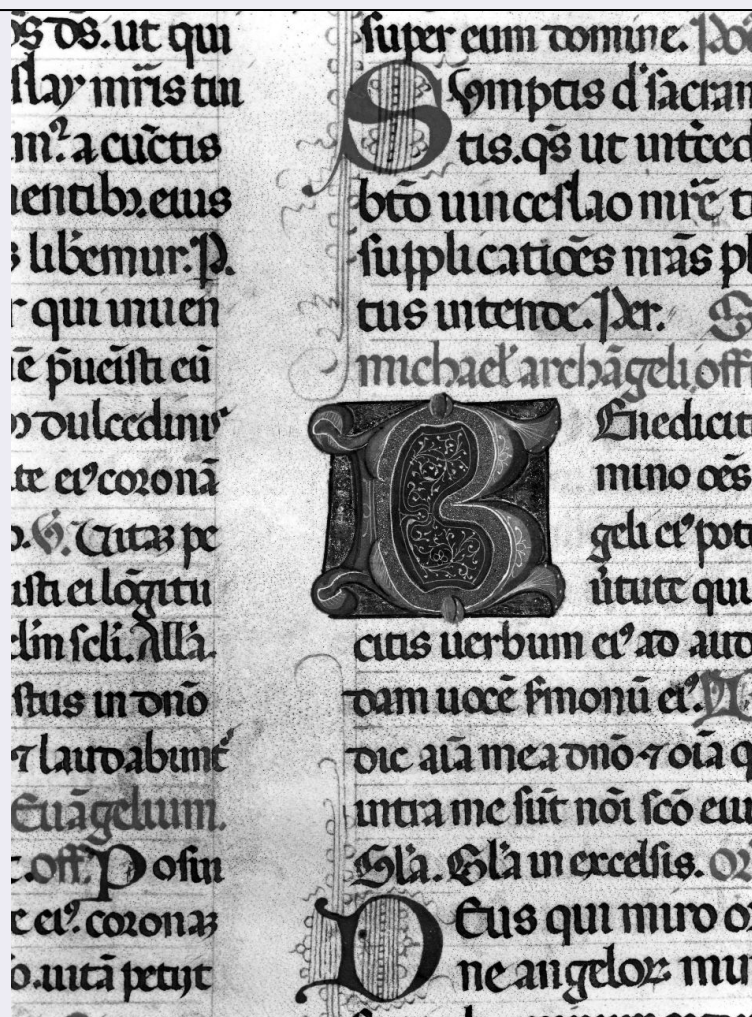 ds. ut qui
slay mr̄is tui
m̄. a cūctis
mentibꝫ. eius
libemur. P.
qui inuen
p̄ueisti eū
dulcedinis
te eiꝰ coronā
V. Vitaꝫ pe
isti ei lōgitu
Allā.
stus in dn̄o
⁊ laudabunt̄
Euāgelium.
off. Posui
eiꝰ. coronaꝫ
uitā petijt
super eum domine. Pos
Sumptis d̓ sacram
tis. qs̄ ut int̄ced
btō uincesłao mr̄e
supplicatiōes nr̄as pl
tus intende. Per.
michael̓ archāgeli off
Benedicit
mino oēs
geli eiꝰ pot
ūtute qui
citis uerbum eiꝰ ad aud
dam uocē s̓monū eiꝰ.
dic aīa mea dn̄o ⁊ oīa q
intra me sūt nōi scō eiu
Gl̓a in excelsis.
Deus qui miro or
ne angeloꝝ mi